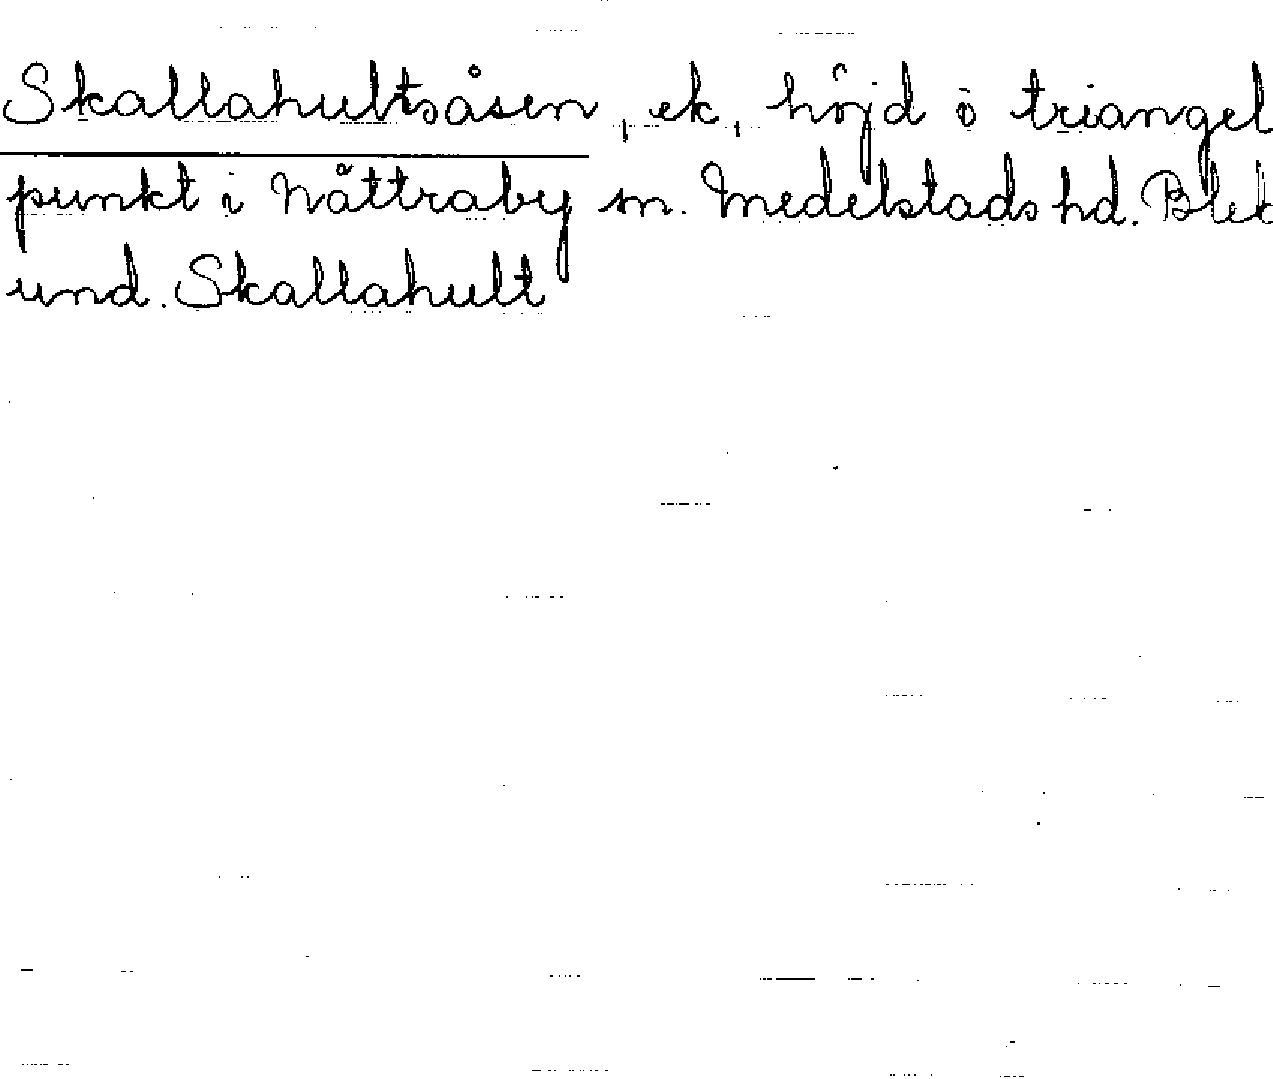 Skallahultsåsen, ek, höjd o triangel
punkt i Nåttraby sn. Medelstads hd. Blek
und. Skallahult